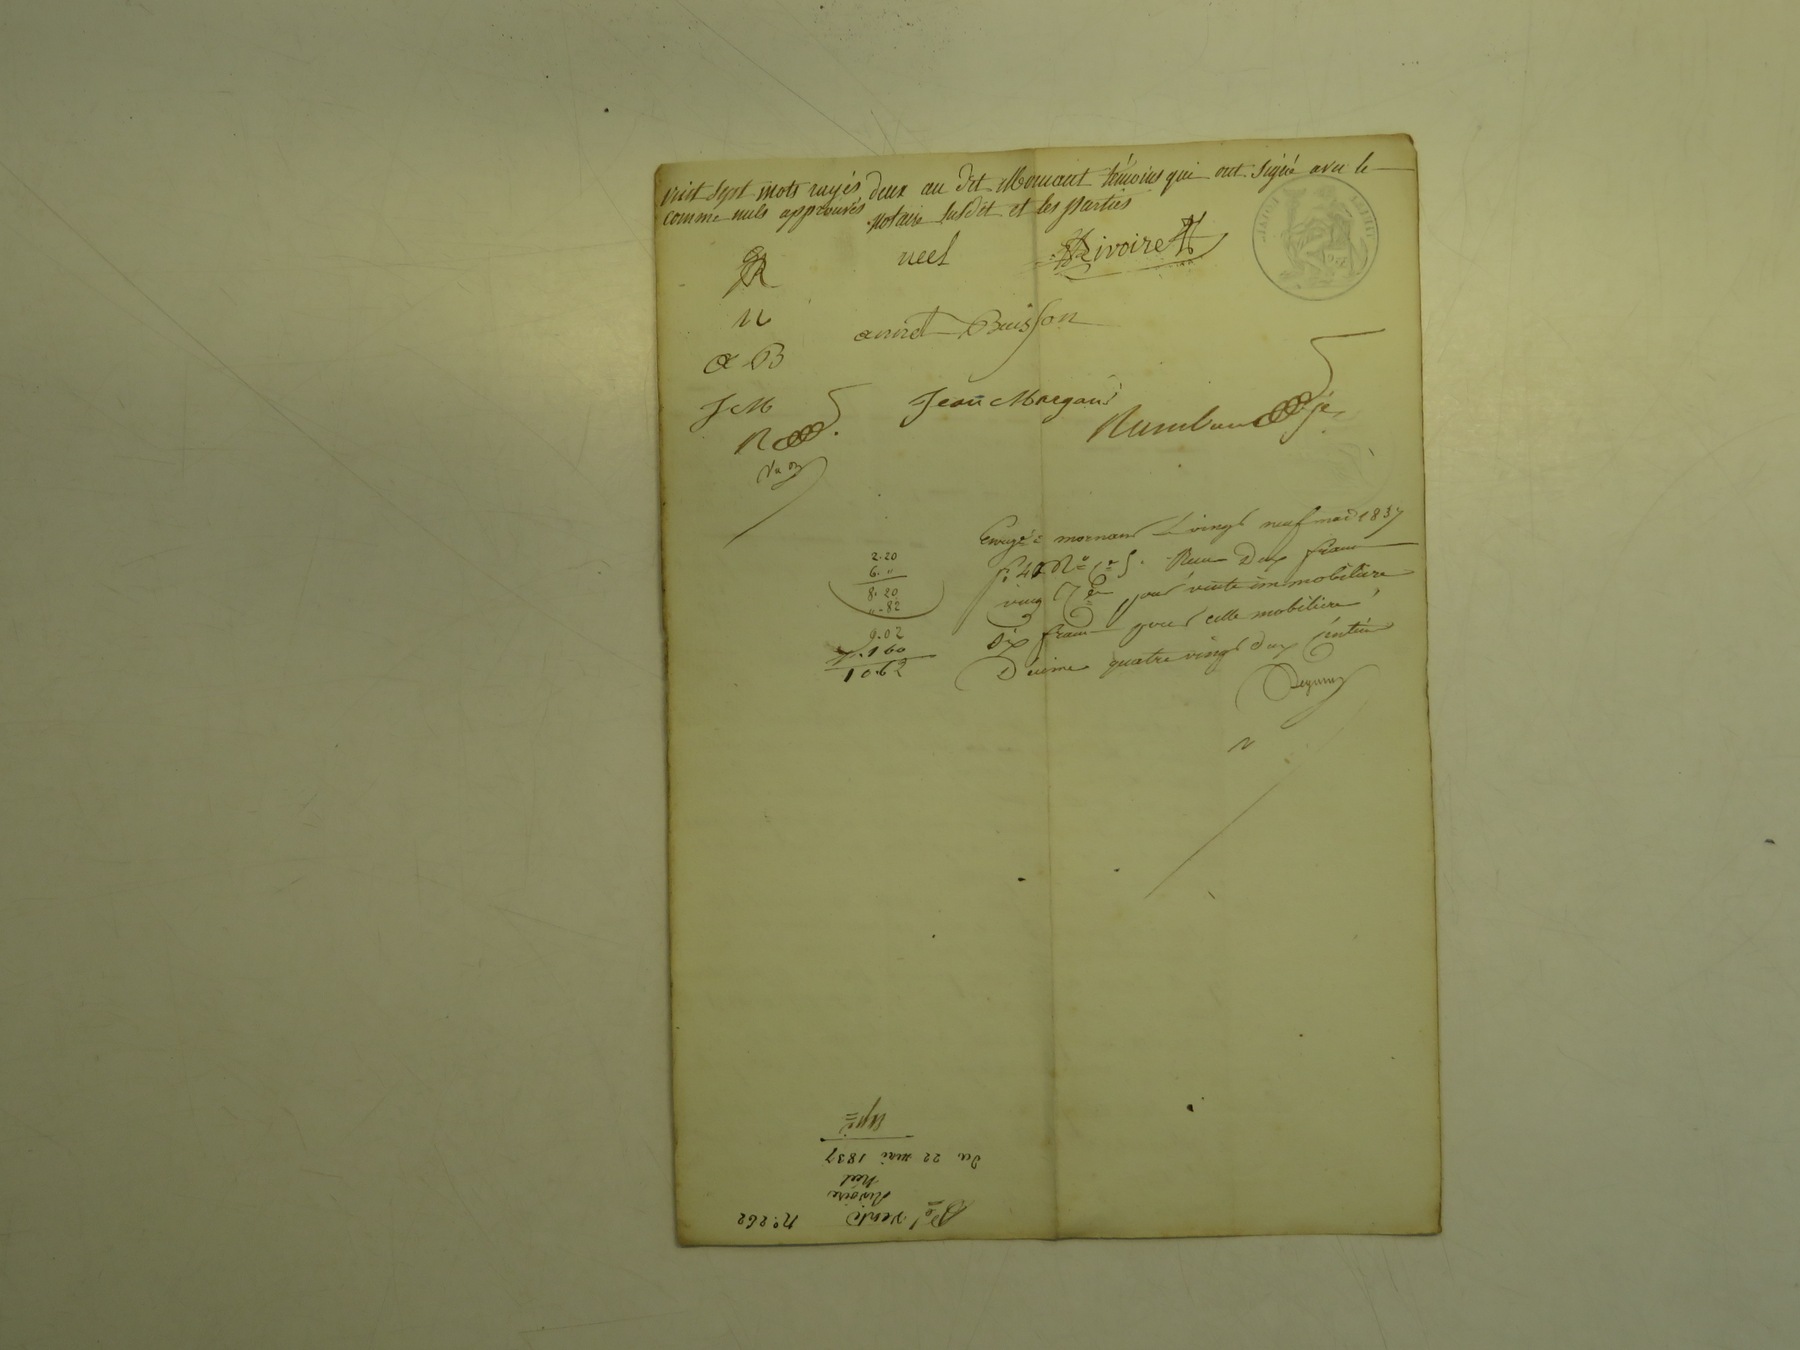 vint sept mots rayés
comme nuls approuvés
deux au dit Mornant témoins qui ont signé avec le
notaire susdit et les parties
neel
Rivoire
R
N
annet Buisson
a B
J M
Jean
R
Engé à mornant le vingt neuf mai 1837
f° 42 R° Reçu Deux francs
vingt pour vente immobilière
six francs pour celle mobilière
Décime quatre vingt deux centimes
2.20
6. "
8.20
" - 82
9.02
1.60
10.62
N° 262
vente
Rivoire
Neel
du 22 mai 1837